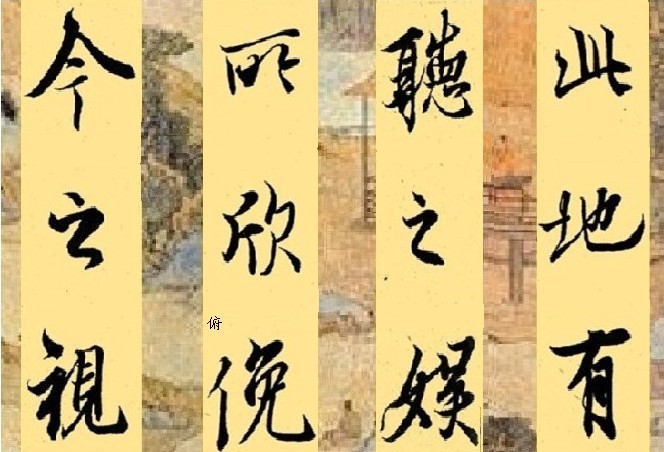 此地有
聽之娛
所欣俛
俯
今之視